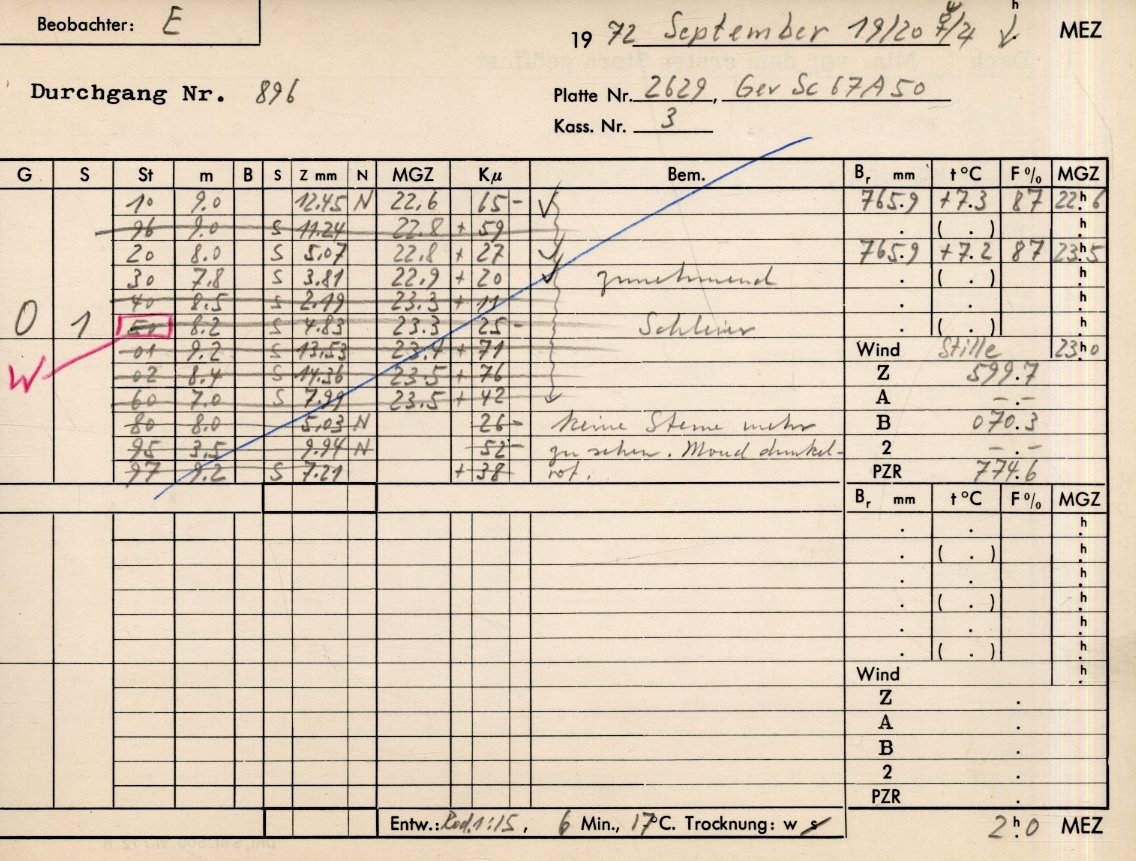 Beobachter: E
19 72 September 19/20 MEZ
Durchgang Nr. 896
Platte Nr. 2629, Gev Sc 67A50
Kass. Nr. 3
G S St m B S Z mm N MGZ Kμ Bem. Br mm t °C F % MGZ
10 9.0 12.45 N 22.6 65 - 765.9 +7.3 87 22h.6
96 9.0 S 11.24 22.8 + 59 . ( . ) h.
20 8.0 S 5.07 22.8 + 27 765.9 +7.2 87 23h.5
30 7.8 S 3.81 22.9 + 20 zunehmend . ( . ) h.
40 8.5 S 2.19 23.3 + 11 . h.
0 1 8.2 S 4.83 23.3 25 - Schleier . ( . ) h.
01 9.2 S 13.53 23.4 + 71 Wind Stille 23h.0
W 02 8.4 S 14.36 23.5 + 76 Z 599.7
60 7.0 S 7.99 23.5 + 42 A -.-
80 8.0 5.03 N 26 - keine Sterne mehr B 070.3
95 3.5 9.94 N 52 - zu sehen. Mond dunkel- 2 -.-
97 9.2 S 7.21 + 38 rot. PZR 774.6
Br mm t °C F % MGZ
. h.
. ( . ) h.
. h.
. ( . ) h.
. h.
. ( . ) h.
Wind h.
Z .
A .
B .
2 .
PZR .
Entw.: Rod. 1:15, 6 Min., 17°C. Trocknung: w s 2h.0 MEZ